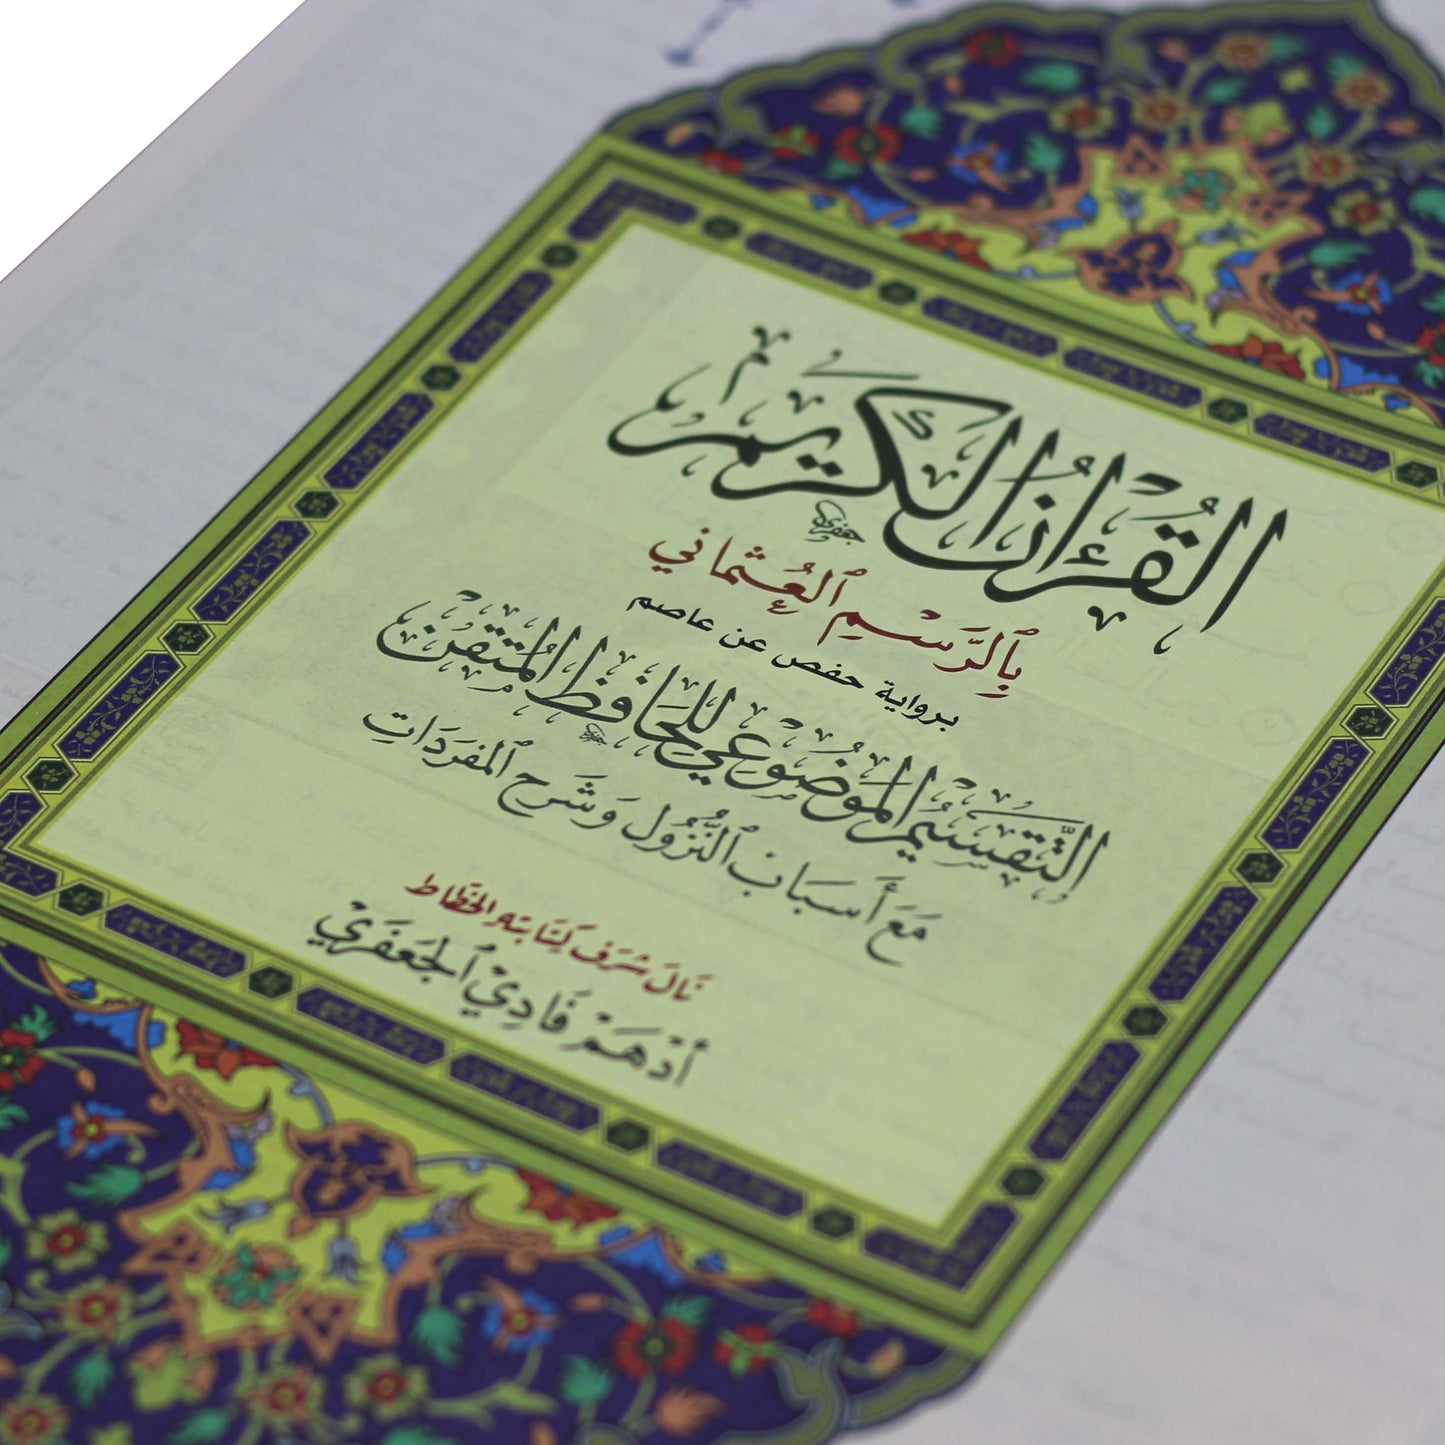 القُرْءَانُ الْكَرِيمُ
جعفري
بِٱلرَّسْمِ ٱلْعُثْمَانِي
برواية حفص عن عاصم
التَّقْسِيمُ الْمَوْضُوْعِي لِلْحَافِظِ الْمُتْقِنْ
مَعَ أَسبَابِ ٱلنُّزُولِ وَشَرحِ ٱلمُفرَدَاتِ
نَالَ شَرَفَ كِتَابَتِهِ الخَطَّاط
أَدْهَمْ فَادِيْ ٱلجَعْفَرِيْ